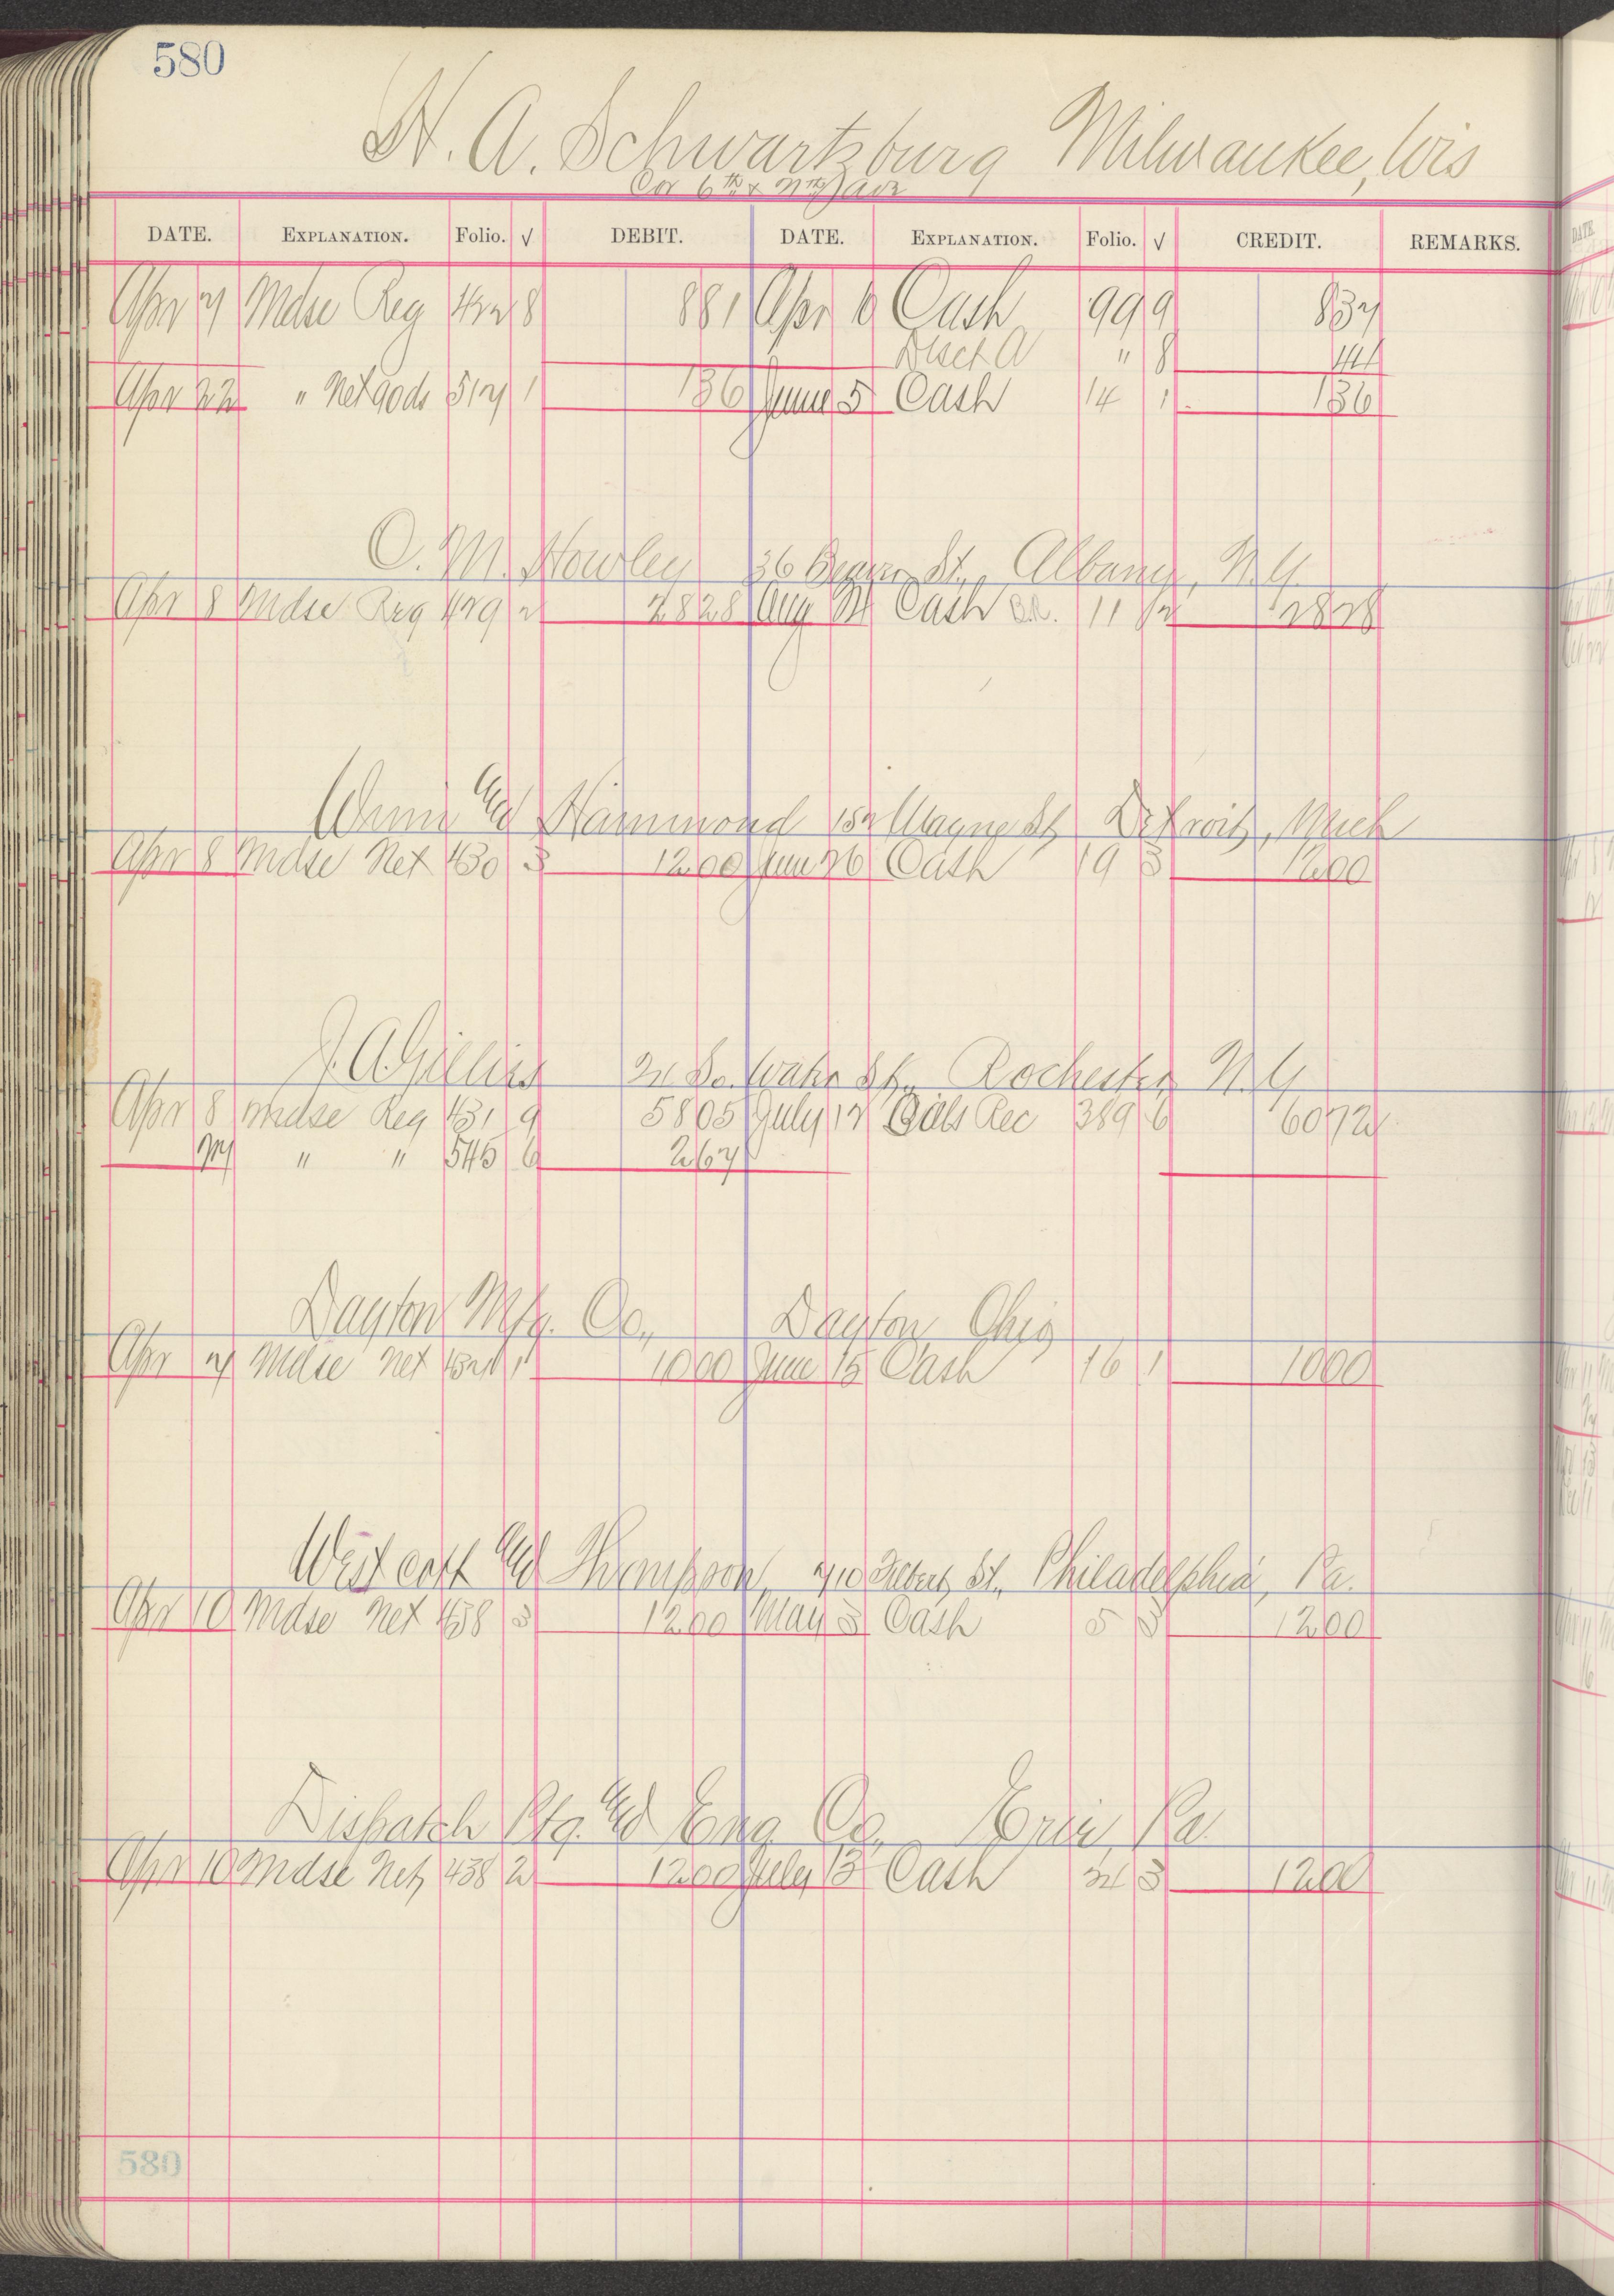 580
H. A. Schwartzburg Milwaukee, Wis
Cor 6th & Ave
DATE. EXPLANATION. Folio. √ DEBIT. DATE. EXPLANATION. Folio. √ CREDIT. REMARKS.
Apr 7 Mdse Reg 8 881 Apr 6 Cash 999 837
Disct A " 8 44
Apr 22 " Net gods 517 1 136 June 5 Cash 14 1 136
O. M. Howley 36 St., Albany, N.Y.
Apr 8 Mdse Reg 429 2 2828 Aug Cash 11 2 2828
Hammond 152 Wayne St, Detroit, Mich
Apr 8 Mdse Net 430 3 1200 Jun 26 Cash 19 3 1200
J. A. Gillies So. Water St., Rochester N.Y.
Apr 8 Mdse Reg 431 9 5805 July 17 Bills Rec 389 6 6072
" " 545 6 267
Dayton Mfg. Co., Dayton, Ohio
Apr Mdse Net 1 1000 June 15 Cash 16 1 1000
Westcott Thompson, 710 Filbert St., Philadelphia, Pa.
Apr 10 Mdse Net 438 3 1200 May 3 Cash 5 3 1200
Dispatch Ptg. Eng Co., Erie, Pa.
Apr 10 Mdse Net, 438 2 1200 July 13 Cash 24 3 1200
580